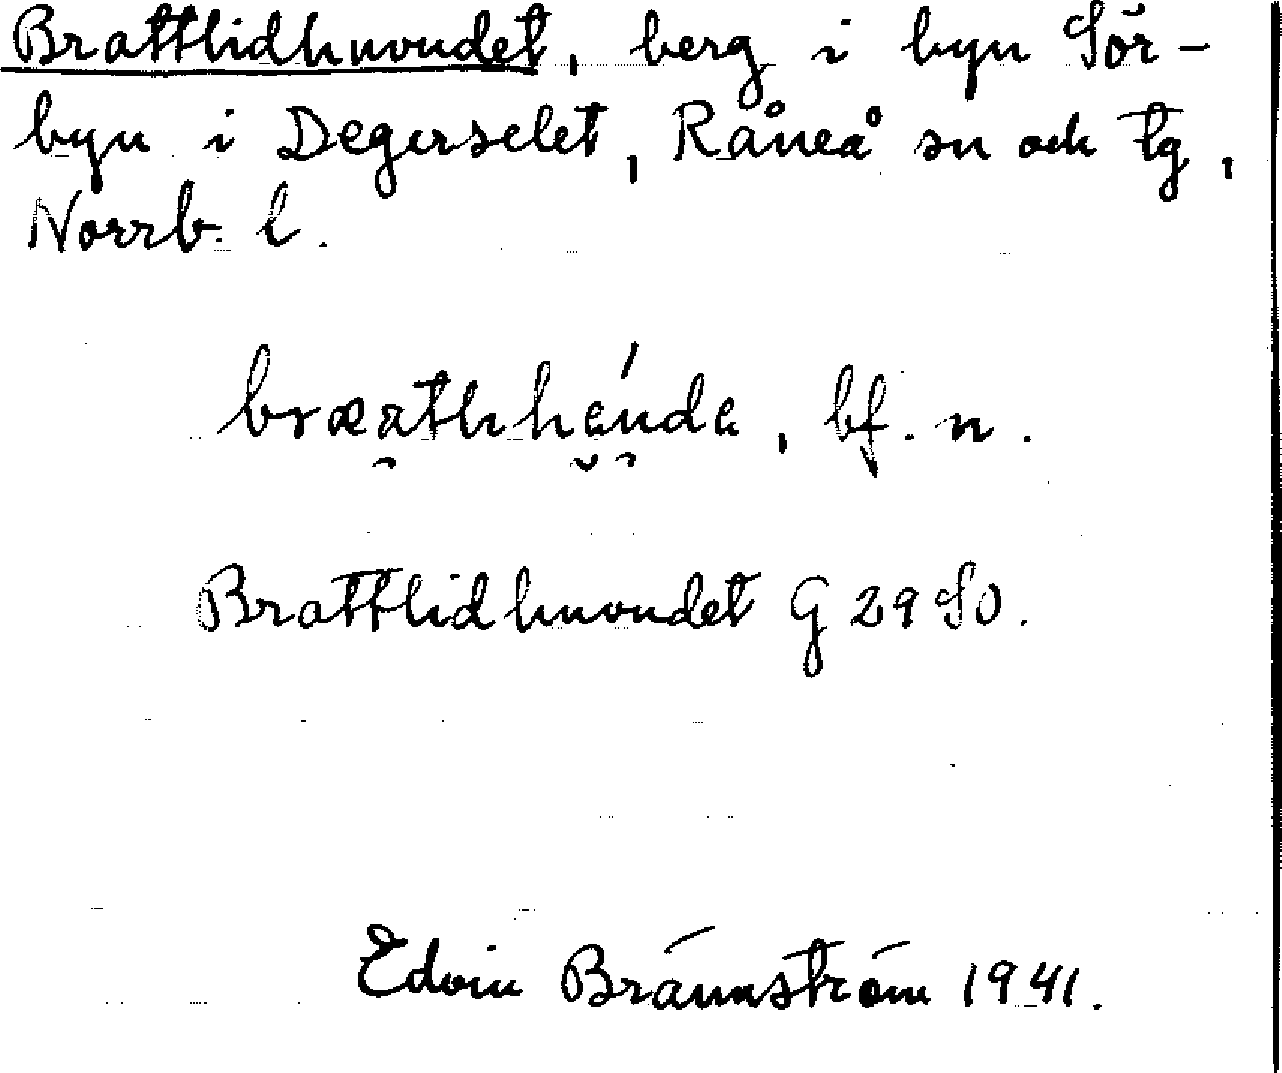 Brattlidhuvudet, berg i byn Sör-
byn i Degerselet, Råneå sn och tg,
Norrb. l.
bf. n.
Brattlidhuvudet G 29 SO.
Edvin Brännström 1941.